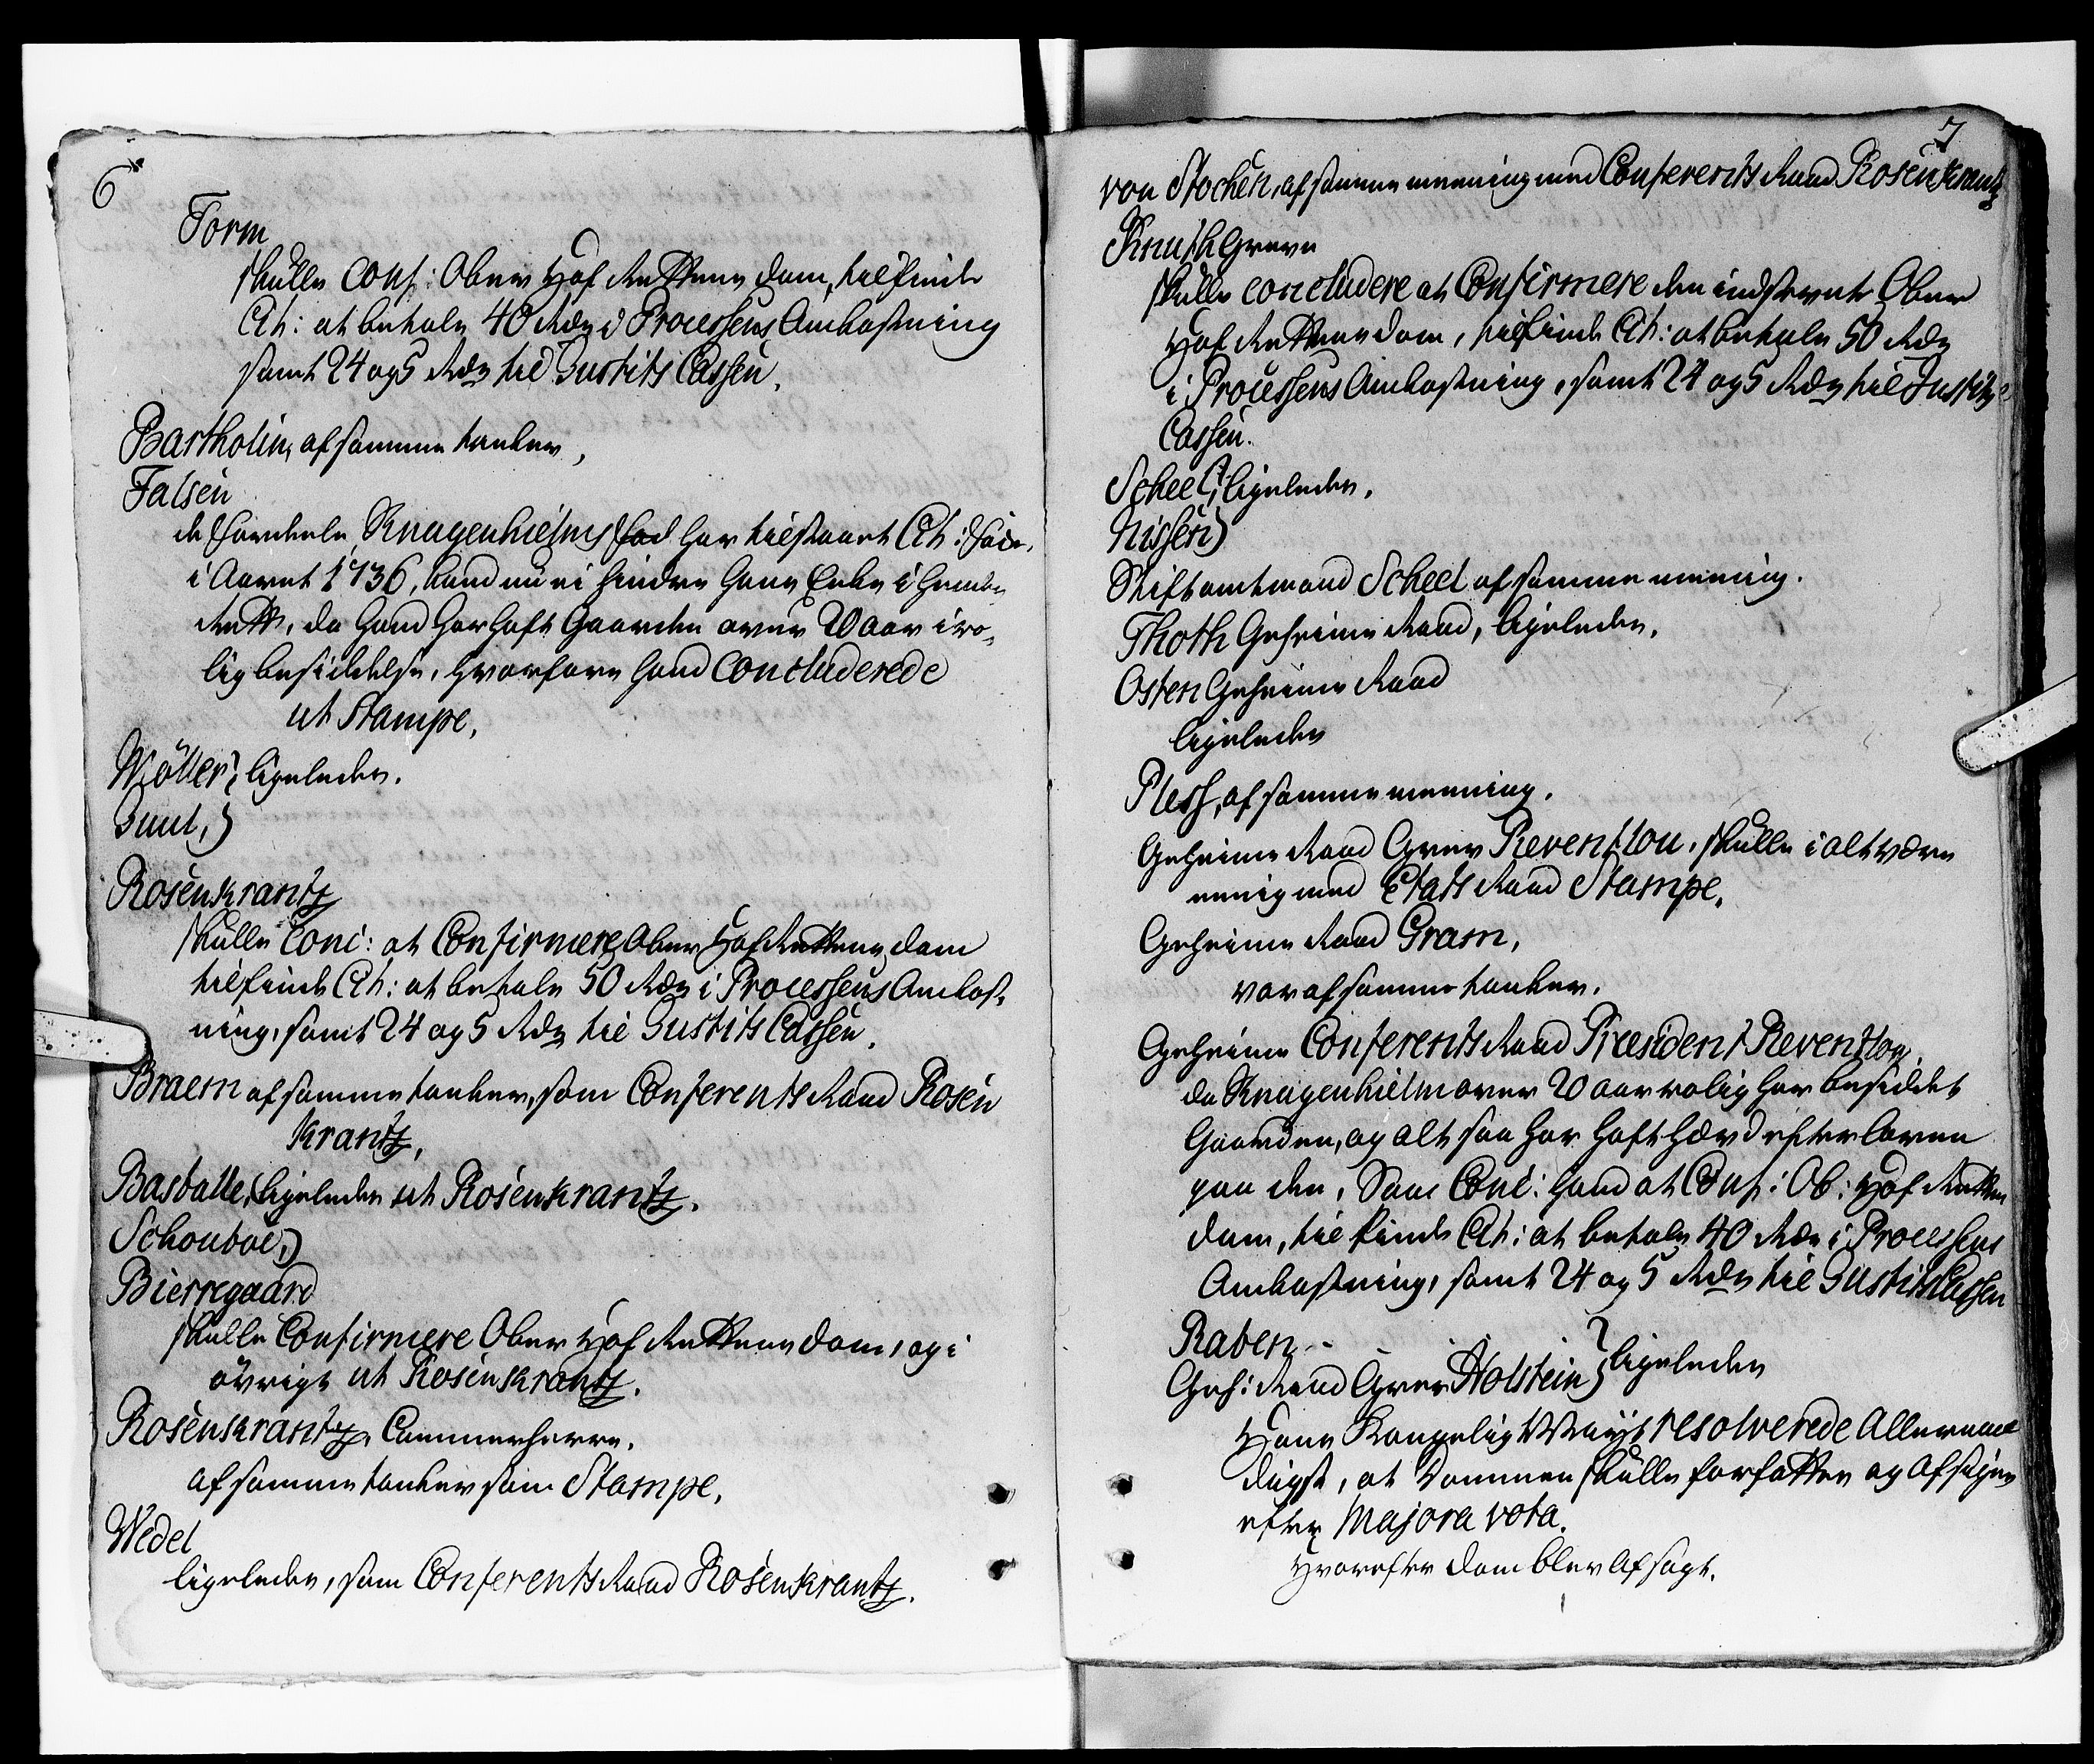 6
Form
skulle conf: Ober Hof Rettens dom, tilfinde
Cit: at betale 40 Rdr i Processens Omkostning
samt 24 og 5 Rdr til Justits Cassen.
Bartholin, af samme tanker,
Falsen
de fordeele, Knagenhielms Fod har tilstaaet Cit:
i Aaret 1736, kand nu ei hindre hans Enke i hendes
Rett, da hand har haft Gaarden over 20 aar i ro-
lig besiddelse, hvorfore hand concluderede
ut Stampe,
Möller, ligeledes.
Juul,
Rosenkrantz
skulle conc: at Confirmere Ober Hof Rettens dom
tilfinde Cit: at betale 50 Rdr i Processens Omkost-
ning, samt 24 og 5 Rdr til Justits Cassen.
Braem af samme tanker, som Conferents Raad Rosen
krantz,
Basballe, ligeledes ut Rosenkrantz.
Schouboe,
Bierregaard
skulle Confirmere Ober Hof Rettens dom, og i
övrigt ut Rosenkrantz.
Rosenkrantz, Cammerherre,
af samme tanker som Stampe,
Wedel
ligeledes, som Conferents Raad Rosenkrantz.
7
von Stöcken, af samme meening med Conferents Raad Rosenkrantz
Knuth Greve
skulle concludere at Confirmere den indstevnte Ober
Hof Rettens dom, tilfinde Cit: at betale 50 Rdr
i Processens Omkostning, samt 24 og 5 Rdr til Justitz
Cassen.
Scheel, ligeledes.
Nissen
Stiftamtmand Scheel af samme meening.
Thott Geheime Raad, ligeledes,
Osten Geheime Raad
ligeledes
Pless, af samme meening.
Geheime Raad Grev Reventlou, skulle i alt være
eenig med Etats Raad Stampe,
Geheime Raad Gram,
var af samme tanker.
Geheime Conferents Raad Præsident Reventlou,
da Knagenhielm over 20 aar rolig har besiddet
Gaarden, og alt saa har haft hævd efter loven
paa den, Saa Conc: hand at Conf: Ob: Hof Rettens
dom, tilfinde Cit: at betale 40 Rdr i Processens
Omkostning, samt 24 og 5 Rdr til Justits Cassen
Raben
Geh: Raad Grev Holstein ligeledes
Hans Kongelig Mayt resolverede Allernaa
digst, at Dommen skulle forfattes og afsiges
efter Majora vota.
Hvorefter dom blev afsagt.